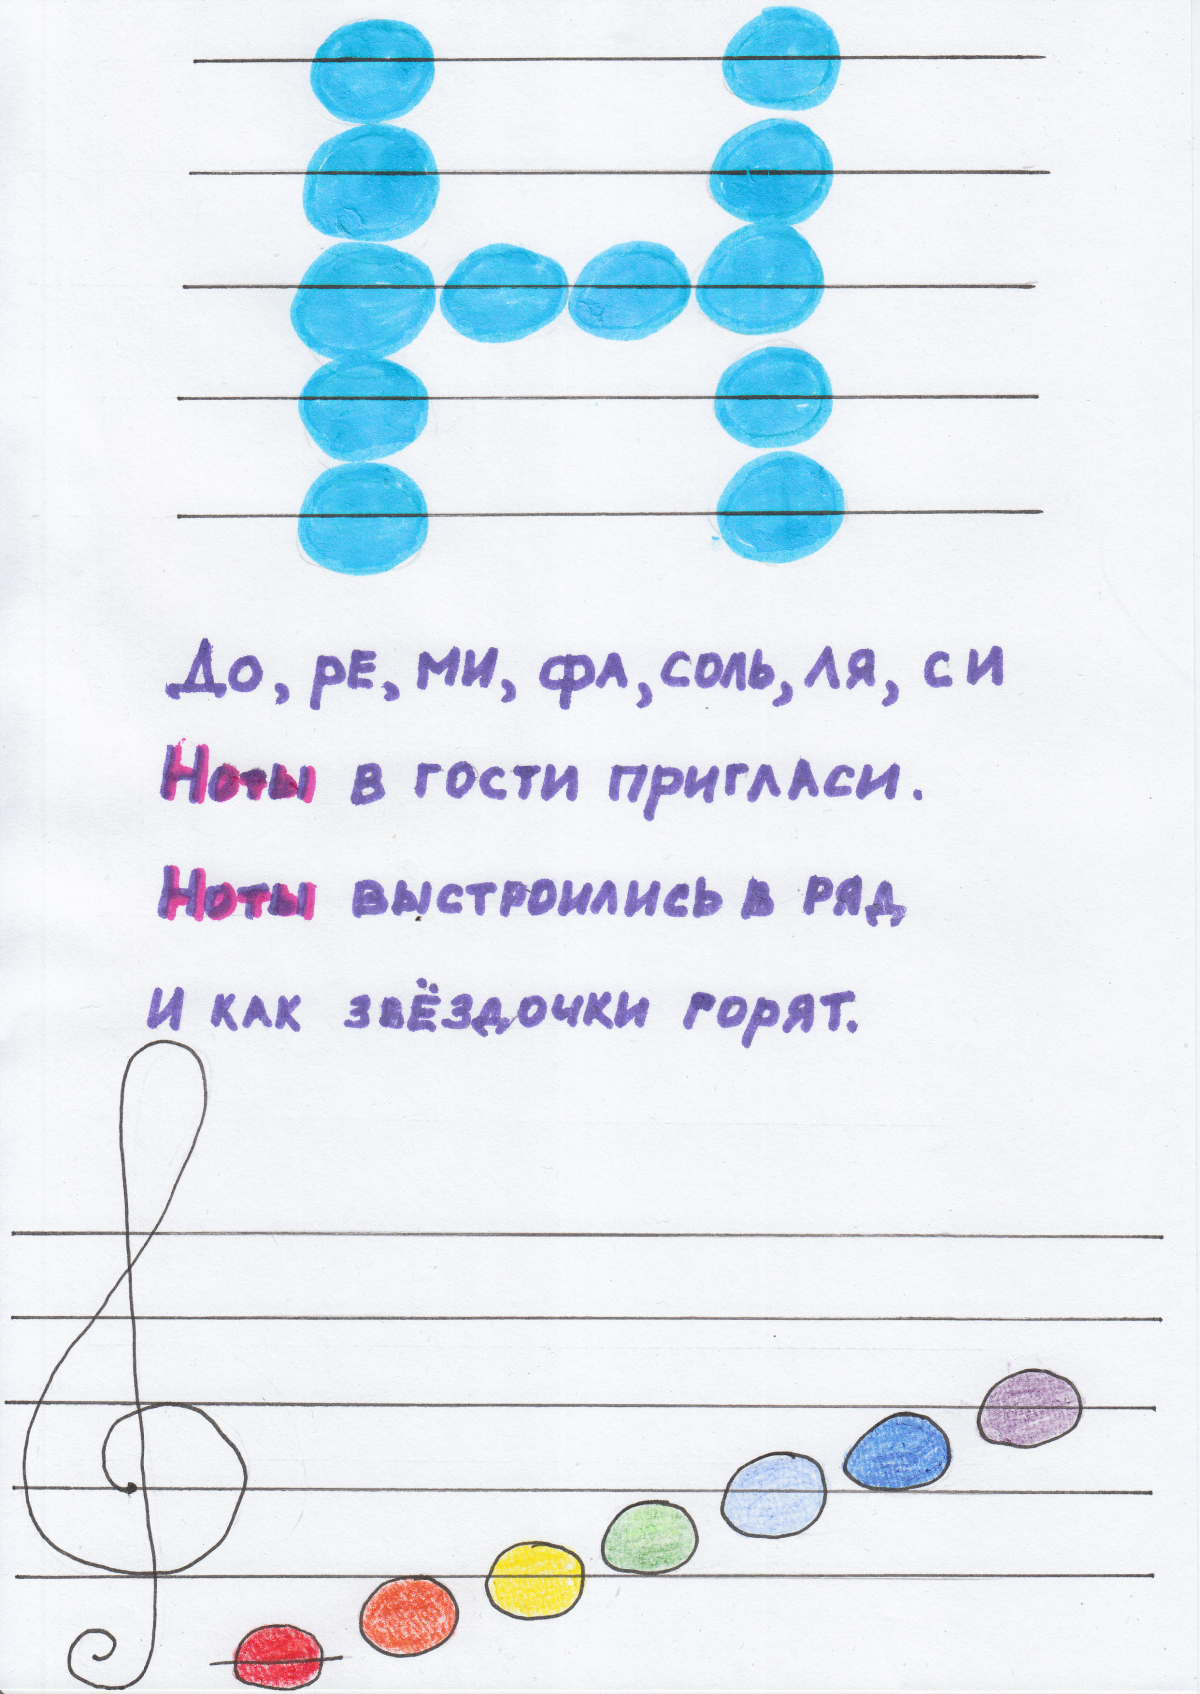 Н
До, ре, ми, фа, соль, ля, си
Ноты в гости пригласи.
Ноты выстроились в ряд
И как звёздочки горят.